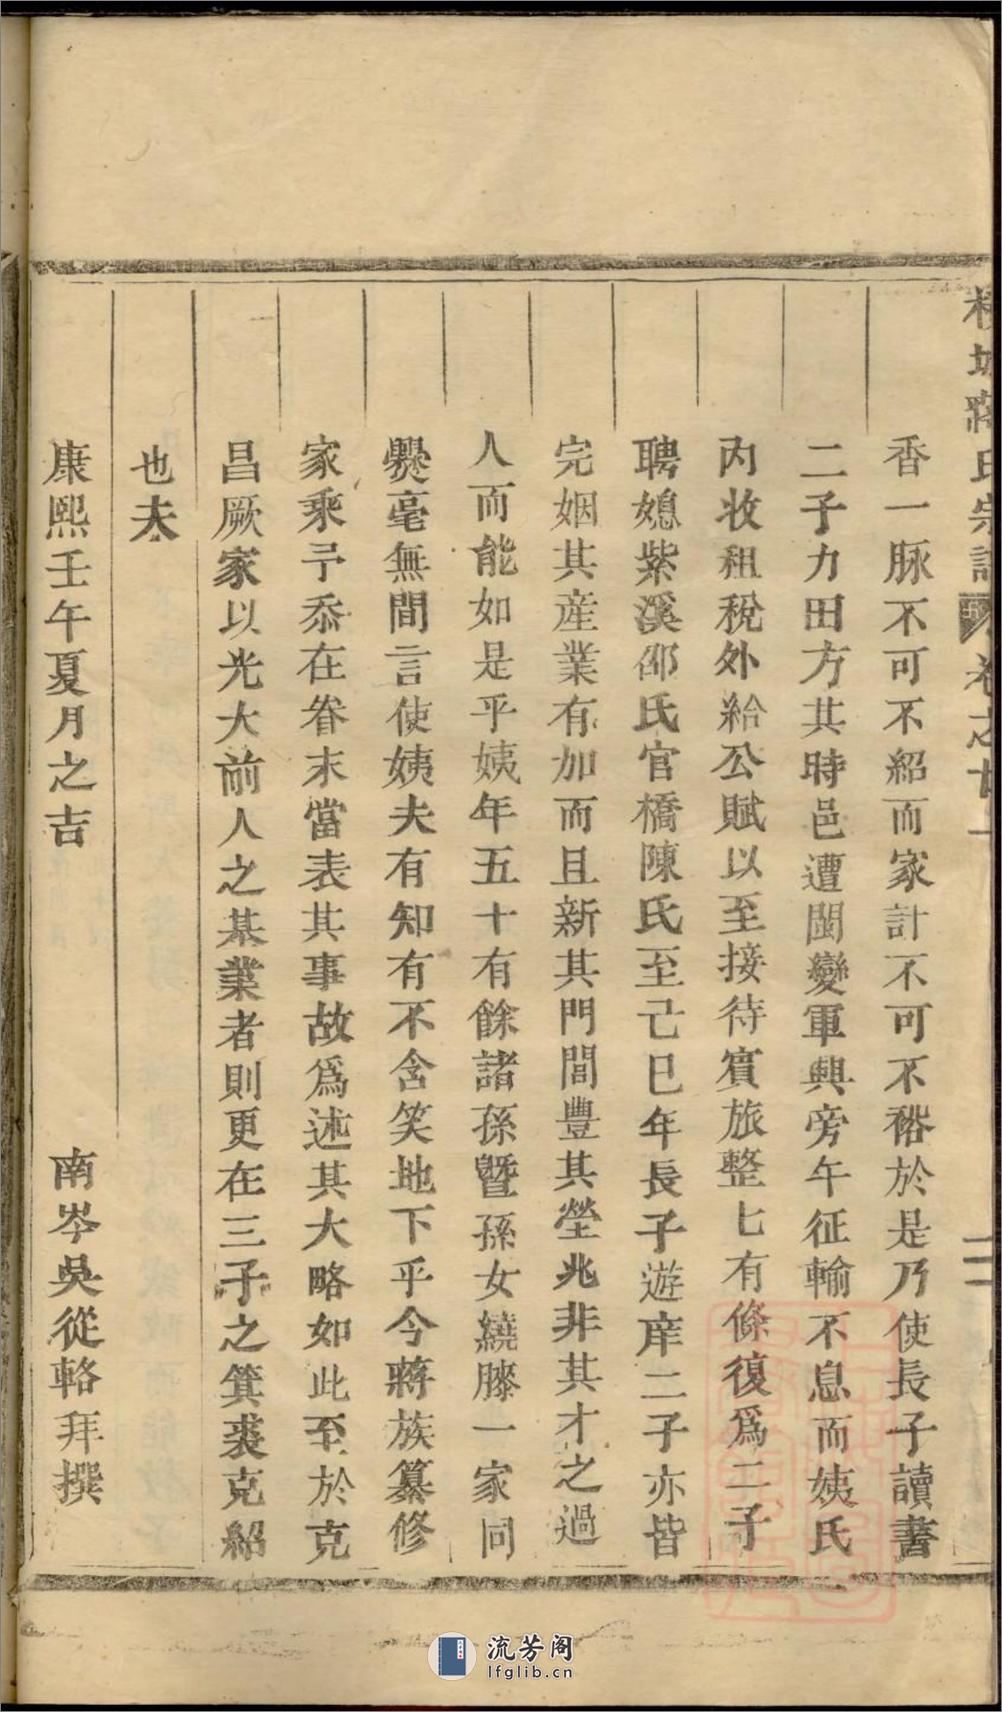 蔣氏宗譜 卷之廿一
香一脉不可不紹而家計不可不裕於是乃使長子讀書
二子力田方其時邑遭閩變軍興旁午征輸不息而姨氏
内收租稅外給公賦以至接待賓旅整七有條復爲二子
聘媳紫溪邵氏官橋陳氏至己巳年長子遊庠二子亦皆
完姻其産業有加而且新其門閭豊其塋兆非其才之過
人而能如是乎姨年五十有餘諸孫曁孫女繞膝一家同
爨毫無間言使姨夫有知有不含笑地下乎今蔣族纂修
家乘予忝在眷末當表其事故爲述其大略如此至於克
昌厥家以光大前人之基業者則更在三子之箕裘克紹
也夫
康熙壬午夏月之吉 南岑吳從輅拜撰
流芳阁
lfglib.cn